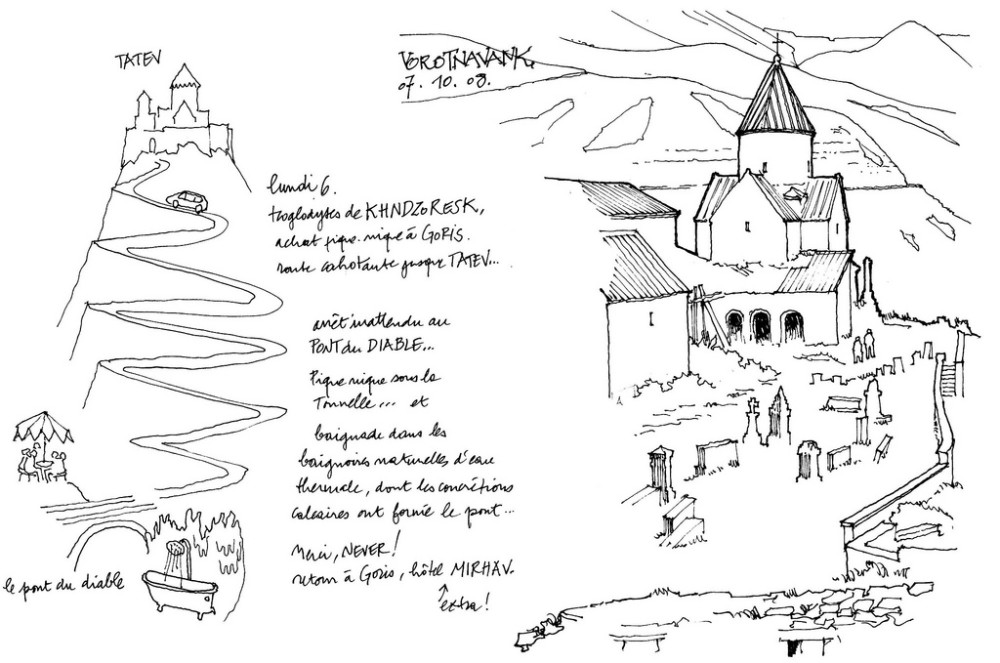 TATEV
lundi 6.
troglodytes de KHNDZORESK,
achat pique-nique à GORIS.
route cahotante jusque TATEV...
arrêt inattendu au
PONT du DIABLE...
Pique nique sous la
Tonnelle... et
baignade dans les
baignoires naturelles d'eau
thermale, dont les concrétions
calcaires ont formé le pont...
Merci, NEVER!
retour à Goris, hôtel MIRHAV.
extra!
le pont du diable
VOROTNAVANK.
07.10.08.